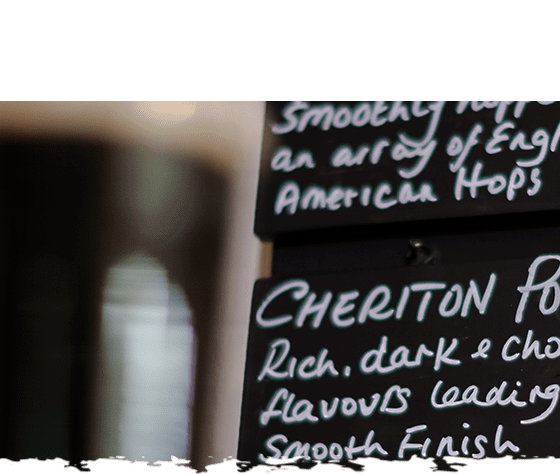 Smoothly hopp
an array of Engl
American Hops
CHERITON Po
Rich, dark & cho
flavours leading
Smooth Finish